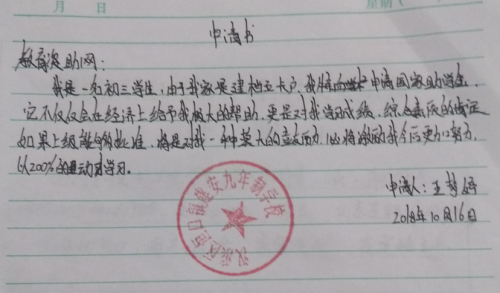 月 日 星期
申请书
教育资助网：
我是一名初三学生，由于我家是建档立卡户，我特此申请国家助学金，
它不仅仅会在经济上给予我极大的帮助，更是对我学习成绩、综合素质的肯定
如果上级能够批准，将是对我一种莫大的鼓励，也将激励我今后更加努力，
以200%的运动才学习。
申请人：王
2018年10月16日
区唐口镇建安九年制学校